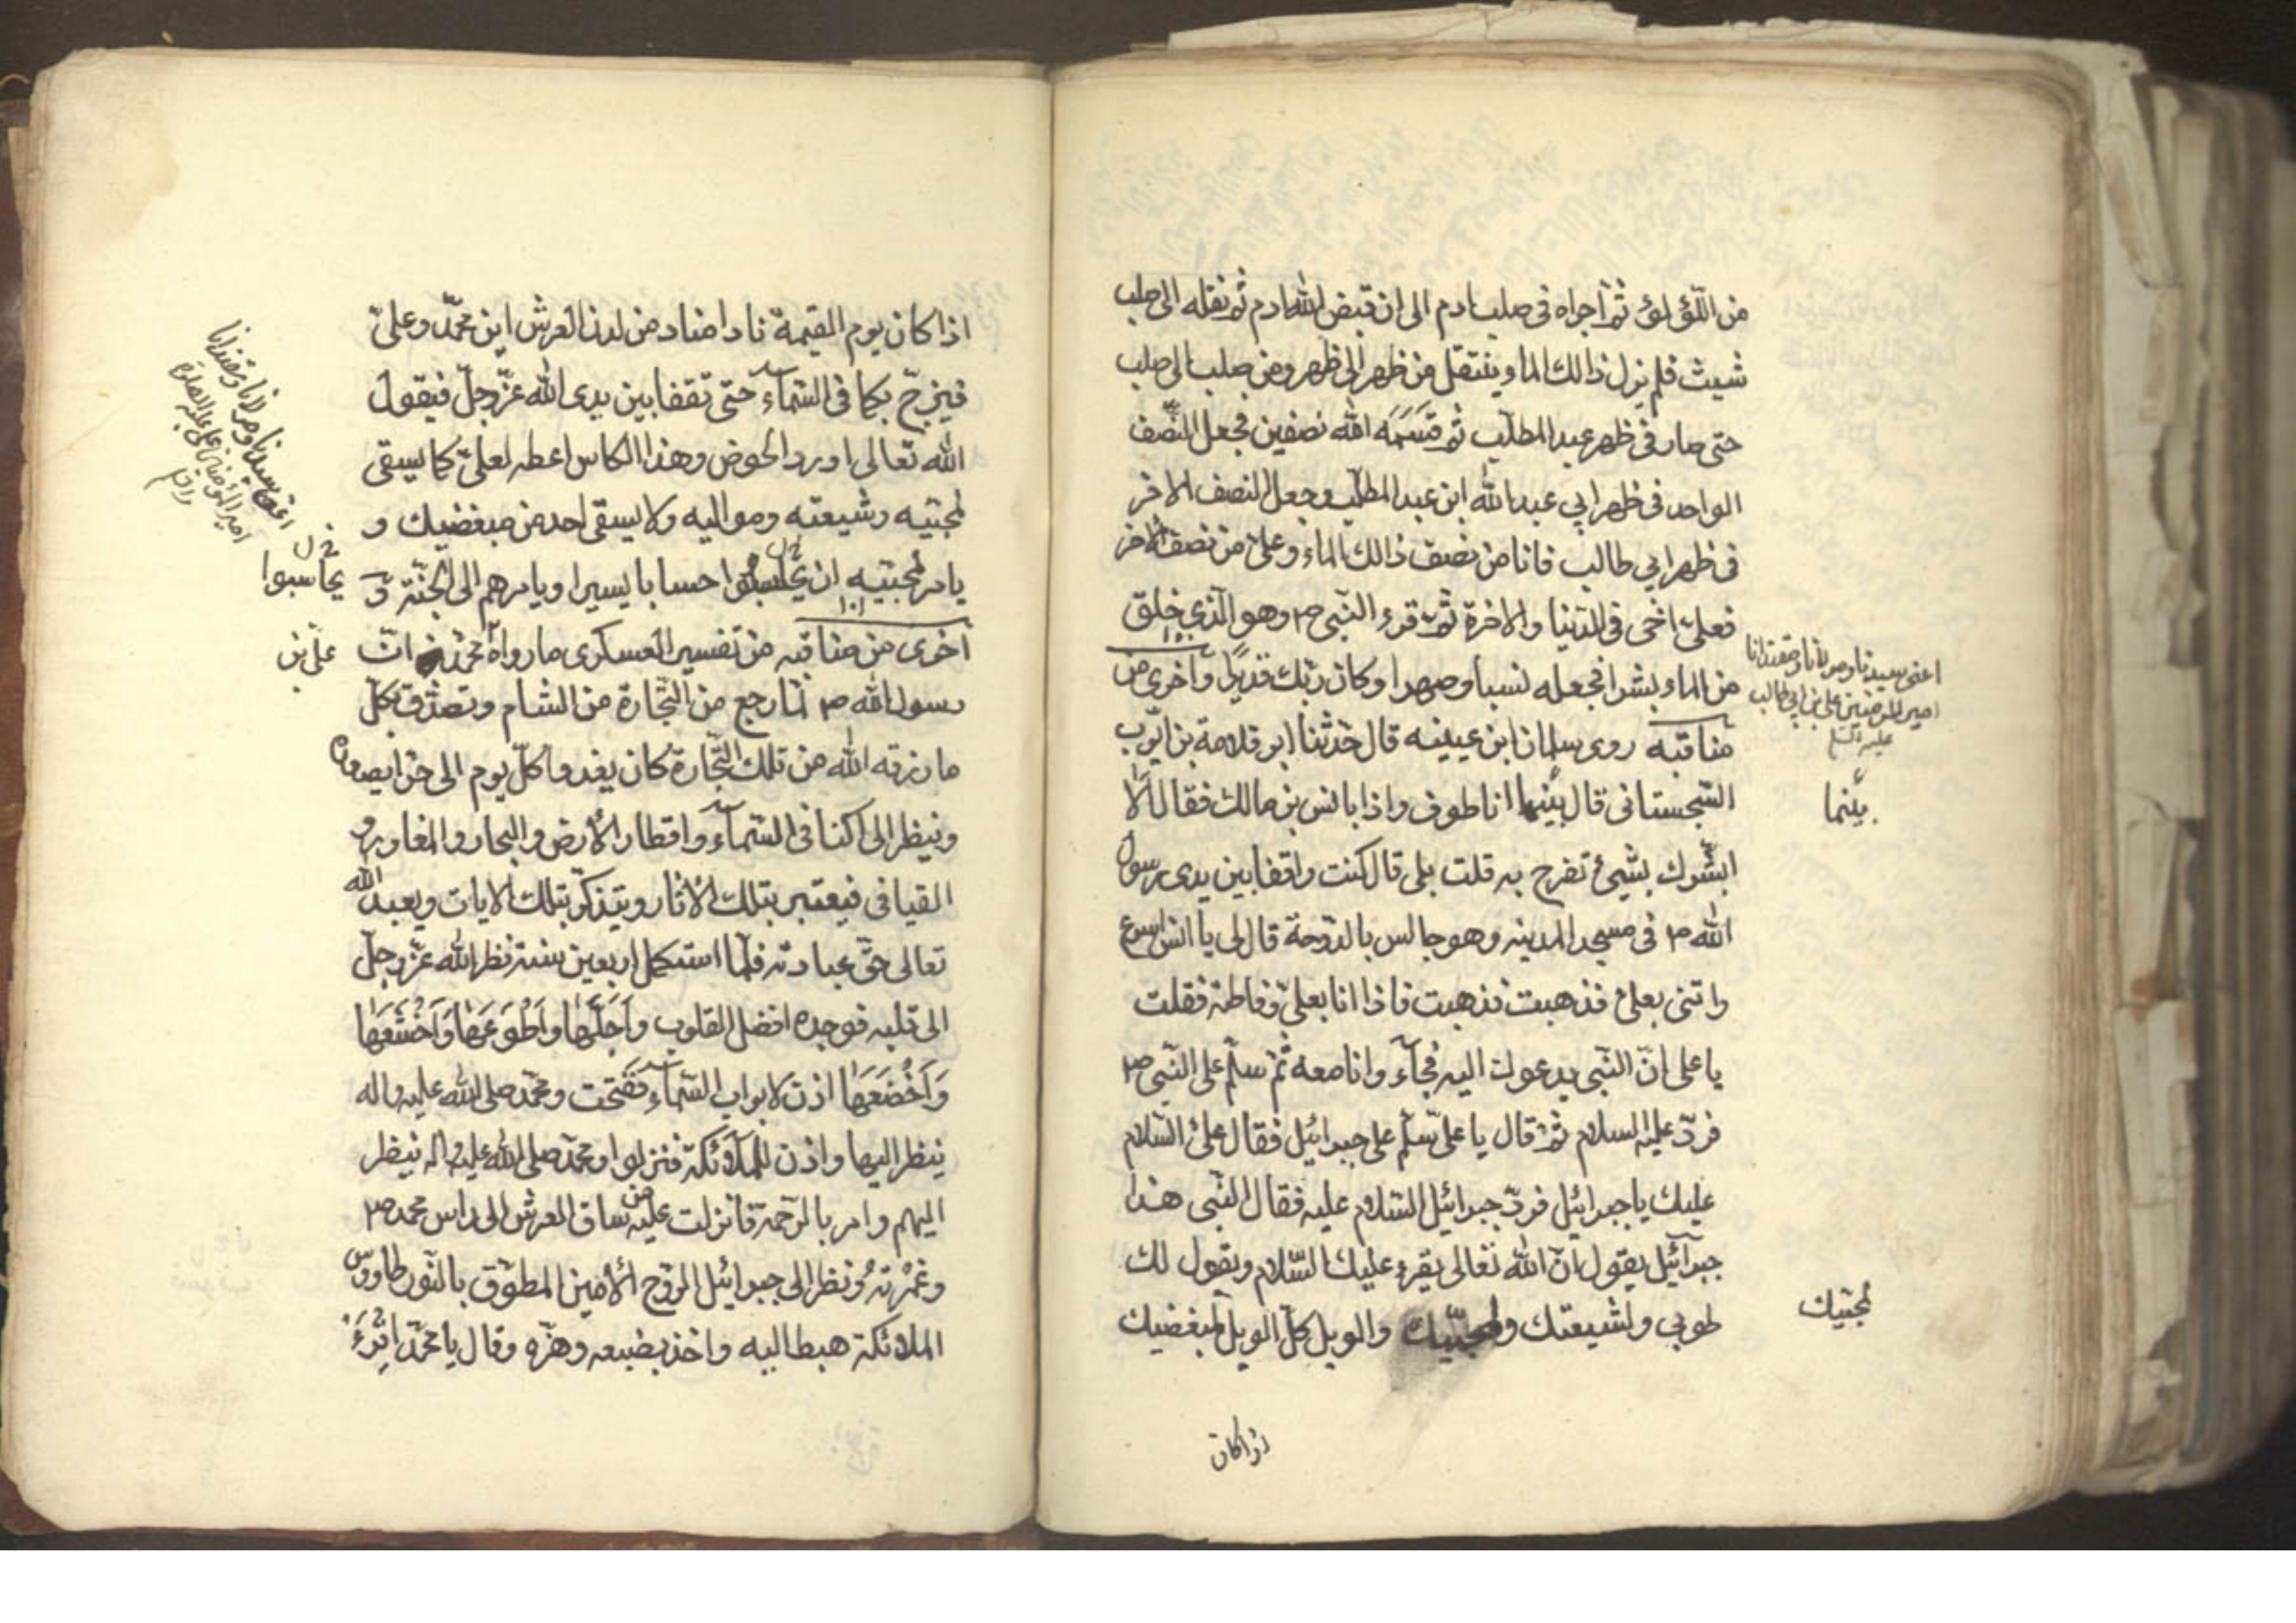 من اللؤلؤ ثم اجراه فى صلب ادم الى ان قبض الله ادم ثم نقله الى صلب
شيث فلم يزل ذالك الماء ينتقل من ظهر الى ظهر ومن صلب الى صلب
حتى صار فى ظهر عبد المطلب ثم قَسَمَه الله نصفين فجعل النّصف
الواحد فى ظهر ابي عبد الله ابن عبد المطلب وجعل النصف الاخر
فى ظهر ابي طالب فانا من نصف ذالك الماء وعلىّ من نصف الاخر
فعلىّ اخى فى الدّنيا والاخرة ثمّ قرء النّبى ص وهو الّذى خلق
من الماء بشرا فجعله نسبا وصهرا وكان ربّك قديرًا واخرى من
١٠٠
مناقبه روى سلمان ابن عيينه قال حدّثنا ابو قلامة بن ايّوب
السّجستانى قال بينما انا طوف واذا بانس بن مالك فقال ألا
ابشّرك بشىء تفرح به قلت بلى قال كنت واقفا بين يدى رسول
الله ص فى مسجد المدينه وهو جالس بالدّوحة قال لى يا انس اسرع
واتنى بعلىّ فذهبت فذهبت فاذا انا بعلىّ وفاطمة فقلت
يا على انّ النّبى يدعوك اليه فجآء وانا معه ثم سلّم على النّبى ص
فردّ عليه السلام ثم قال يا علىّ سلّم على جبرائيل فقال علىّ السّلام
عليك يا جبرائيل فردّ جبرائيل السّلام عليه فقال النّبى هذا
جبرآئيل يقول انّ الله تعالى يقرء عليك السّلام ويقول لك
طوبى ولشيعتك ولمحبّيك والويل كلّ الويل لمبغضيك
اعنى سيدنا ومولانا ومقتدانا
امير المؤمنين على بن ابى طالب
عليه السلم
بينما
لمحبّيك
اذا كان
اذا كان يوم القيمة نادا مناد من لدن العرش اين محمّد وعلىّ
فيزجّ بكما فى السّمآء حتى تقفا بين يدى الله عزّ وجلّ فيقول
الله تعالى اورد الحوض وهذا الكاس اعطه لعلىّ كما يسقى
لمحبّيه وشيعته ومواليه ولا يسقى احد من مبغضيك و
يامر لمحبّيه ان يحاسبوا حسابا يسيرا ويامر هم الى الجنّة و
١٠١
اخرى من مناقبه من تفسير العسكرى ما رواه محمّد انّ
رسول الله ص لمّا رجع من التّجارة من الشام وتصدّق بكلّ
ما رزقه الله من تلك التّجارة كان يغدوا كلّ يوم الى حرا يصعدون
وينظر الى اكناف السّمآء واقطار الأرض والبحار والمغاوير و
القيافى فيعتبر بتلك الأثار ويتذكّر بتلك الايات ويعبد الله
تعالى حقّ عبادته فلمّا استكمل اربعين سنة نظر الله عزّ وجلّ
الى قلبه فوجده افضل القلوب وَاَجَلَّهَا وَاَطْوَعَهَا وَاَخْشَعَهَا
وَاَخْضَعَهَا اذن لابواب السّمآء ففتحت ومحمّد صلى الله عليه واله
ينظر اليها واذن للملآئكة فنزلوا ومحمّد صلى الله عليه واله ينظر
اليهم وامر بالرّحمة فانزلت عليه من ساق العرش الى راس محمد ص
وغَمْرَتهُ ونظر الى جبرائيل الرّوح الأمين المطوّق بالنّور طاووس
الملائكة هبط اليه واخذ بضبعه وهزّه وقال يا محمّد اقرَءْ
اعنى سيدنا ومولانا ومقتدانا
يحاسبوا
علىّ بن